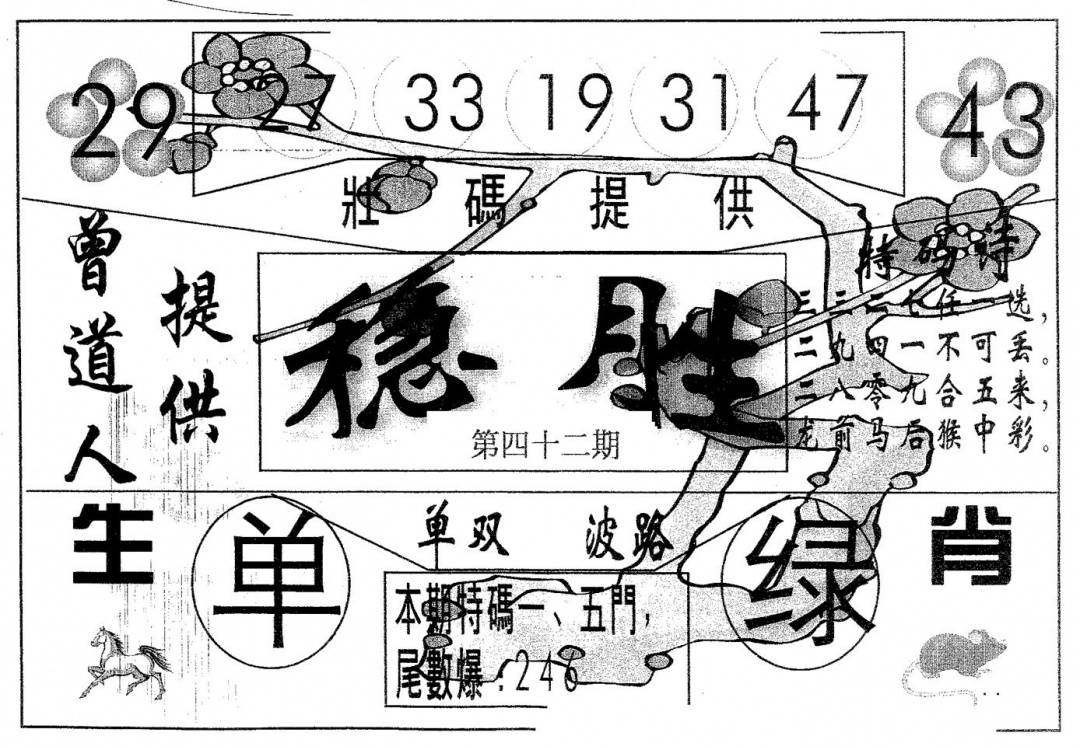 29 27 33 19 31 47 43
壯碼提供
曾道人
提供
稳胜
第四十二期
特码诗
三三二七任一选，
三九四一不可丢。
二八零九合五来，
龙前马后猴中彩。
生 单 单双 波路 绿 肖
本期特碼一、五門，
尾數爆：246